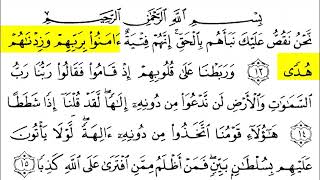 بِسْمِ ٱللَّهِ ٱلرَّحْمَٰنِ ٱلرَّحِيمِ
نَحْنُ نَقُصُّ عَلَيْكَ نَبَأَهُم بِٱلْحَقِّ ۚ إِنَّهُمْ فِتْيَةٌ ءَامَنُوا۟ بِرَبِّهِمْ وَزِدْنَٰهُمْ
هُدًى ۝١٣ وَرَبَطْنَا عَلَىٰ قُلُوبِهِمْ إِذْ قَامُوا۟ فَقَالُوا۟ رَبُّنَا رَبُّ
ٱلسَّمَٰوَٰتِ وَٱلْأَرْضِ لَن نَّدْعُوَا۟ مِن دُونِهِۦٓ إِلَٰهًا ۖ لَّقَدْ قُلْنَآ إِذًا شَطَطًا
۝١٤ هَٰٓؤُلَآءِ قَوْمُنَا ٱتَّخَذُوا۟ مِن دُونِهِۦٓ ءَالِهَةً ۖ لَّوْلَا يَأْتُونَ
عَلَيْهِم بِسُلْطَٰنٍۭ بَيِّنٍ ۖ فَمَنْ أَظْلَمُ مِمَّنِ ٱفْتَرَىٰ عَلَى ٱللَّهِ كَذِبًا ۝١٥